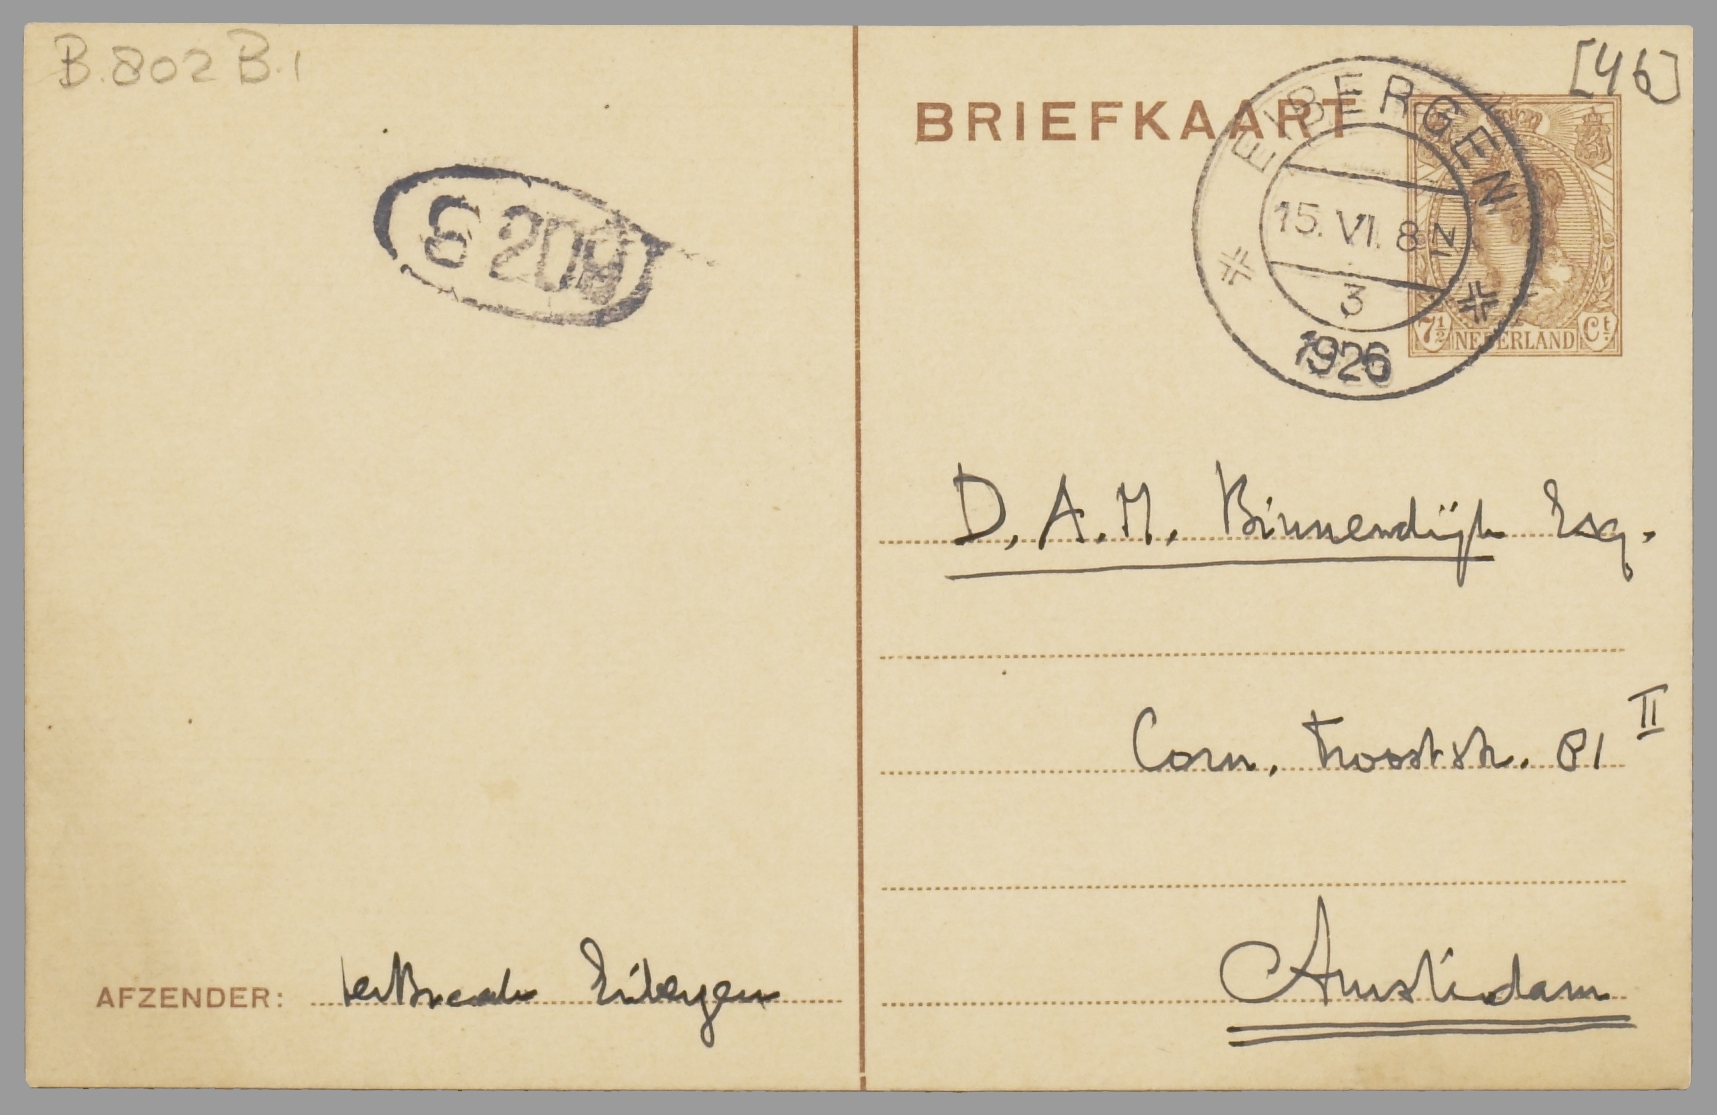 B.802 B.1
[46]
BRIEFKAART
EIBERGEN
15.VI. 8 N
3
1926
7½ NEDERLAND Ct
S 209
D. A. M. Binnendijk Esq.
Corn. Trooststr. 81 II
Amsterdam
AFZENDER: terBraak Eibergen